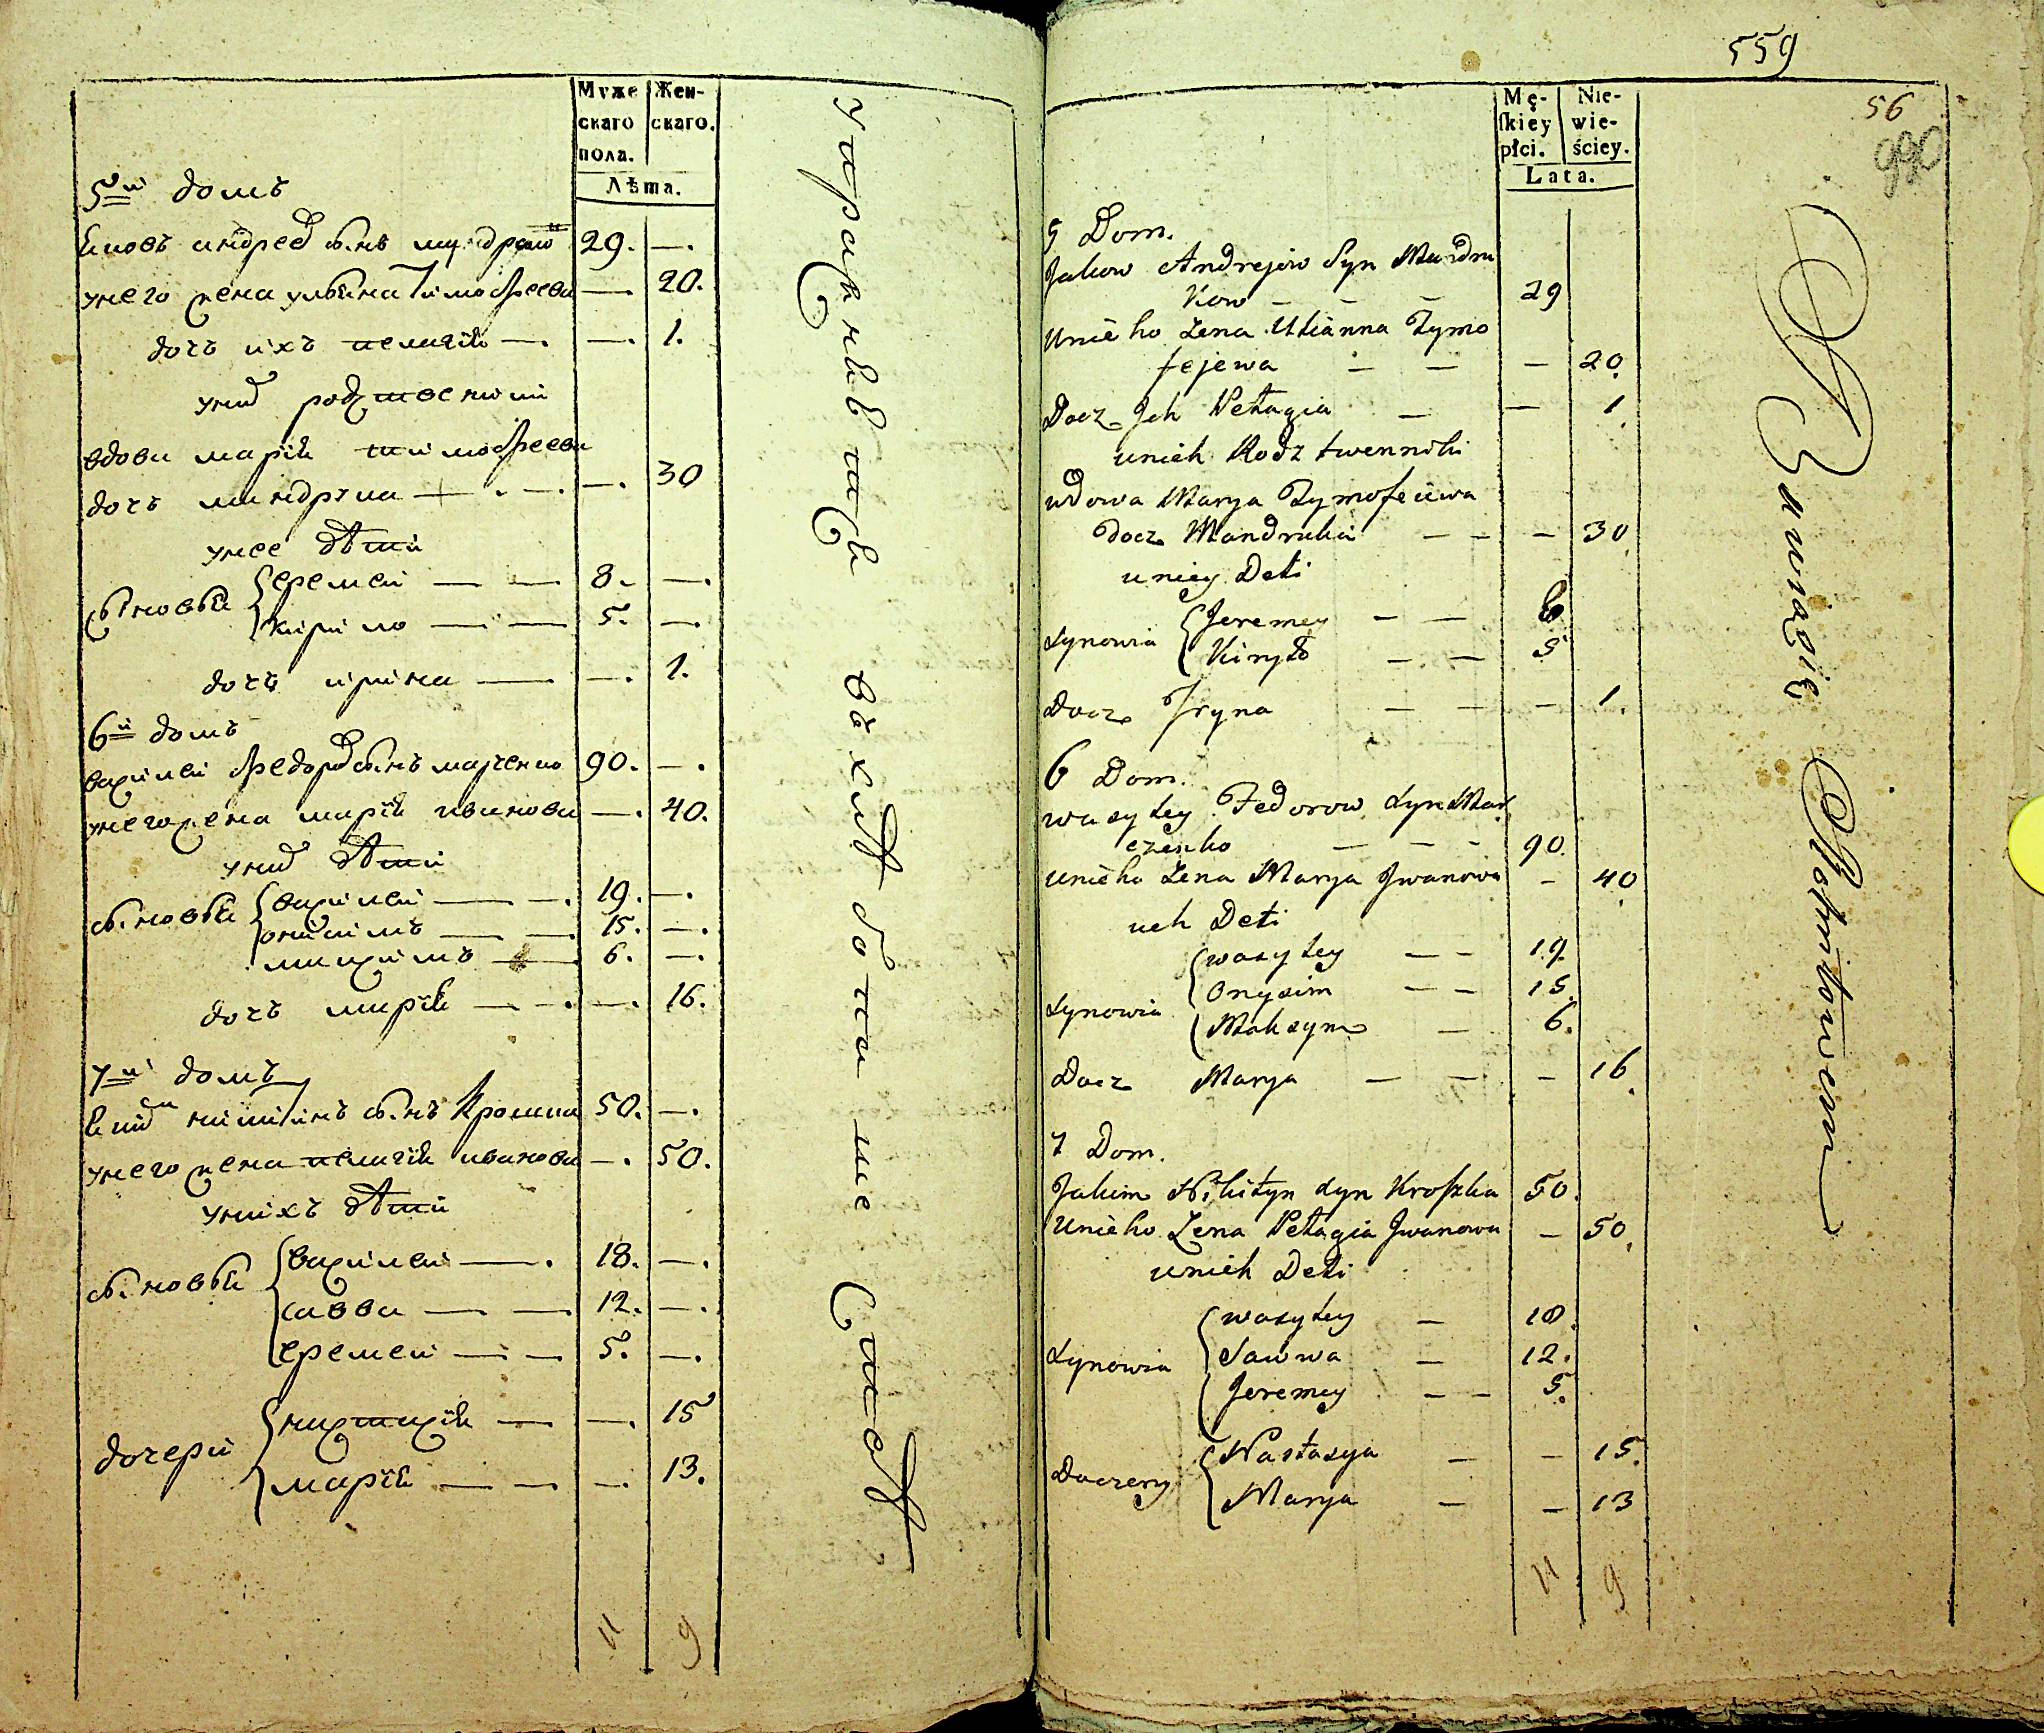 Муже
скаго
пола.
Жен-
скаго.
Лѣта.
5й домъ
Яковъ андреев сынъ мандрыко 29. —.
унего жена ульяна Тимофеева — 20.
дочь ихъ пелагія —. —. 1.
уних родственики
вдова марія тимофеева
дочь мандрука — . —. —. 30
унее дѣти
сыновья еремей — — 8. —.
кирило — — 5. —.
дочь ирина — —. 1.
6й домъ
василей федоров сынъ марченко 90. —.
унего жена марія иванова —. 40.
уних дѣти
сыновья василей — —. 19. —.
онисимъ — — 15. —.
максимъ — 6. —.
дочь марія — —. —. 16.
7й домъ
Яким никитинъ сынъ Крошка 50. —.
унего жена пелагія иванова —. 50.
унихъ дѣти
сыновья василей —. 18. —.
савва — — 12. —.
еремей — — 5. —.
дочери настасія — —. 15
марія — — —. 13.
11 9
559
56
990
Mę-
ſkiey
płci.
Nie-
wie-
ściey.
Lata.
5 Dom.
Jakow Andrejow Syn Mandru
Kow — — — 29
Unieho Żena Ulianna Tymo
fejewa — — — 20.
Docz Jch Pełagia — — 1.
unich Rodz twenniki
wdowa Marya Tymofeiewa
Docz Mandruka — — — 30
uniey Deti
synowia Jeremey — — 8
Kiryło — — 5
Docz Jryna — — — 1.
6 Dom.
wasyley Fedorow syn Mar
czenko — — — 90.
Unieho Żena Marya Jwanowa — 40
uch Deti
synowia wasyley — — 19.
Onysim — — 15.
Maksym — 6.
Docz Marya — — — 16.
7 Dom.
Jakim Nikityn syn Kroſzka 50.
Unieho Żena Pełagia Jwanowa — 50.
unich Deti
synowia wasyley — 18.
Sawwa — 12.
Jeremey — — 5.
Doczery Nastasya — — 15.
Marya — — 13
11 9